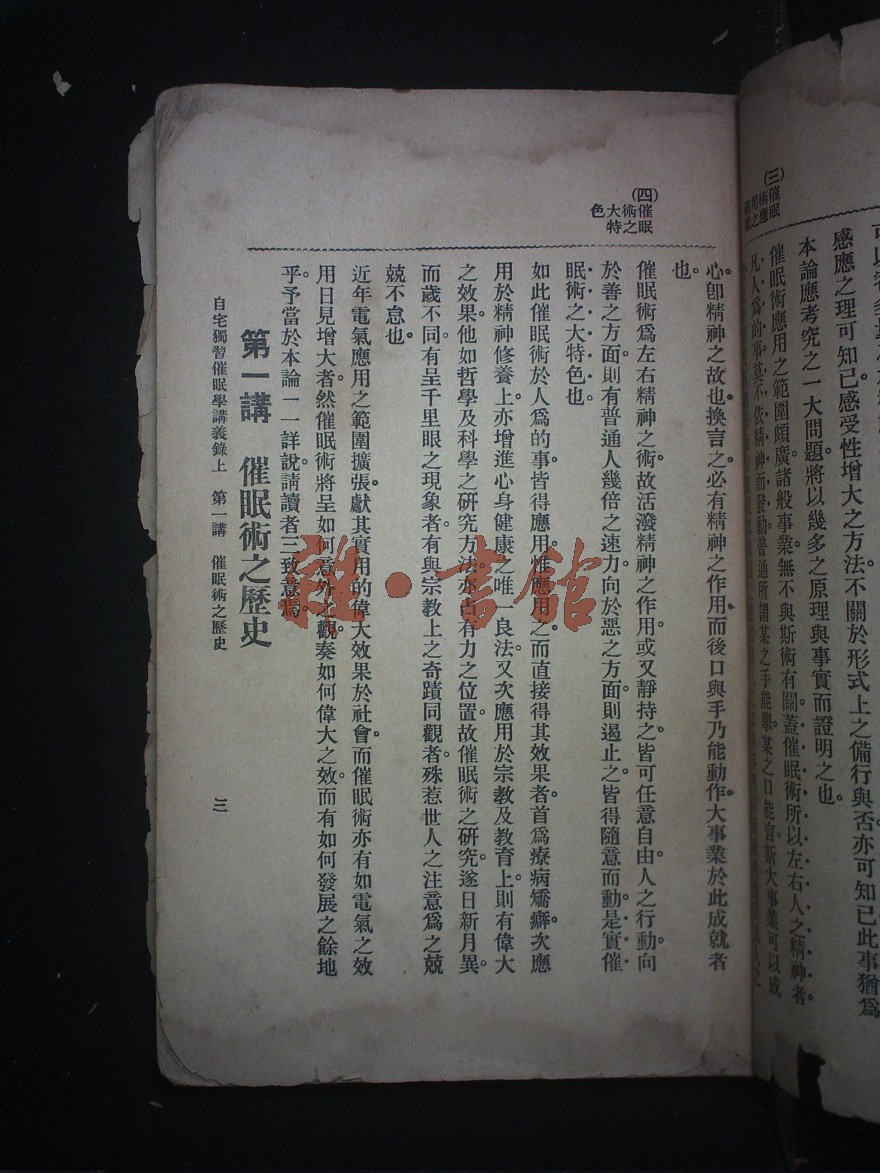 (三)催眠
術應用
感應之理可知已感受性增大之方法不關於形式上之備行與否亦可知已此事猶爲
本論應考究之一大問題將以幾多之原理與事實而證明之也。
催眠術應用之範圍頗廣諸般事業無不與斯術有關蓋催眠術所以左右人之精神者。
凡人爲的事莫不依精神而發動普通所謂某之手能舉某之口能言斯大事業可以成
(四)催眠
術之
大特
色
心卽精神之故也換言之必有精神之作用而後口與手乃能動作大事業於此成就者
也。
催眠術爲左右精神之術故活潑精神之作用或又靜持之皆可任意自由。人之行動向
於善之方面則有普通人幾倍之速力向於惡之方面則遏止之皆得隨意而動是實催
眠術之大特色也
如此催眠術於人爲的事皆得應用惟應用之而直接得其效果者首爲療病矯癖次應
用於精神修養上亦增進心身健康之唯一良法又次應用於宗教及教育上則有偉大
之效果。他如哲學及科學之研究方法亦占有力之位置故催眠術之研究遂日新月異。
而歲不同有呈千里眼之現象者有與宗教上之奇蹟同觀者殊惹世人之注意爲之兢
兢不怠也。
近年電氣應用之範圍擴張獻其實用的偉大效果於社會而催眠術亦有如電氣之效
用日見增大者然催眠術將呈如何意外之觀奏如何偉大之效而有如何發展之餘地
乎予當於本論一一詳說請讀者三致意焉。
第一講 催眠術之歷史
自宅獨習催眠學講義錄上 第一講 催眠術之歷史 三
書館